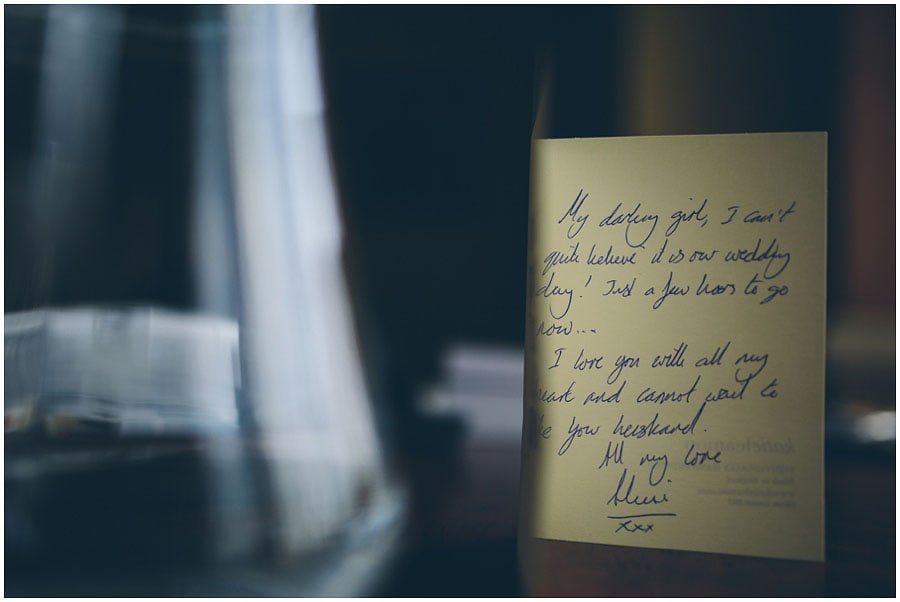 My darling girl, I can't
quite believe it is our wedding
day! Just a few hours to go
now...
I love you with all my
heart and cannot wait to
be your husband.
All my love
xxx